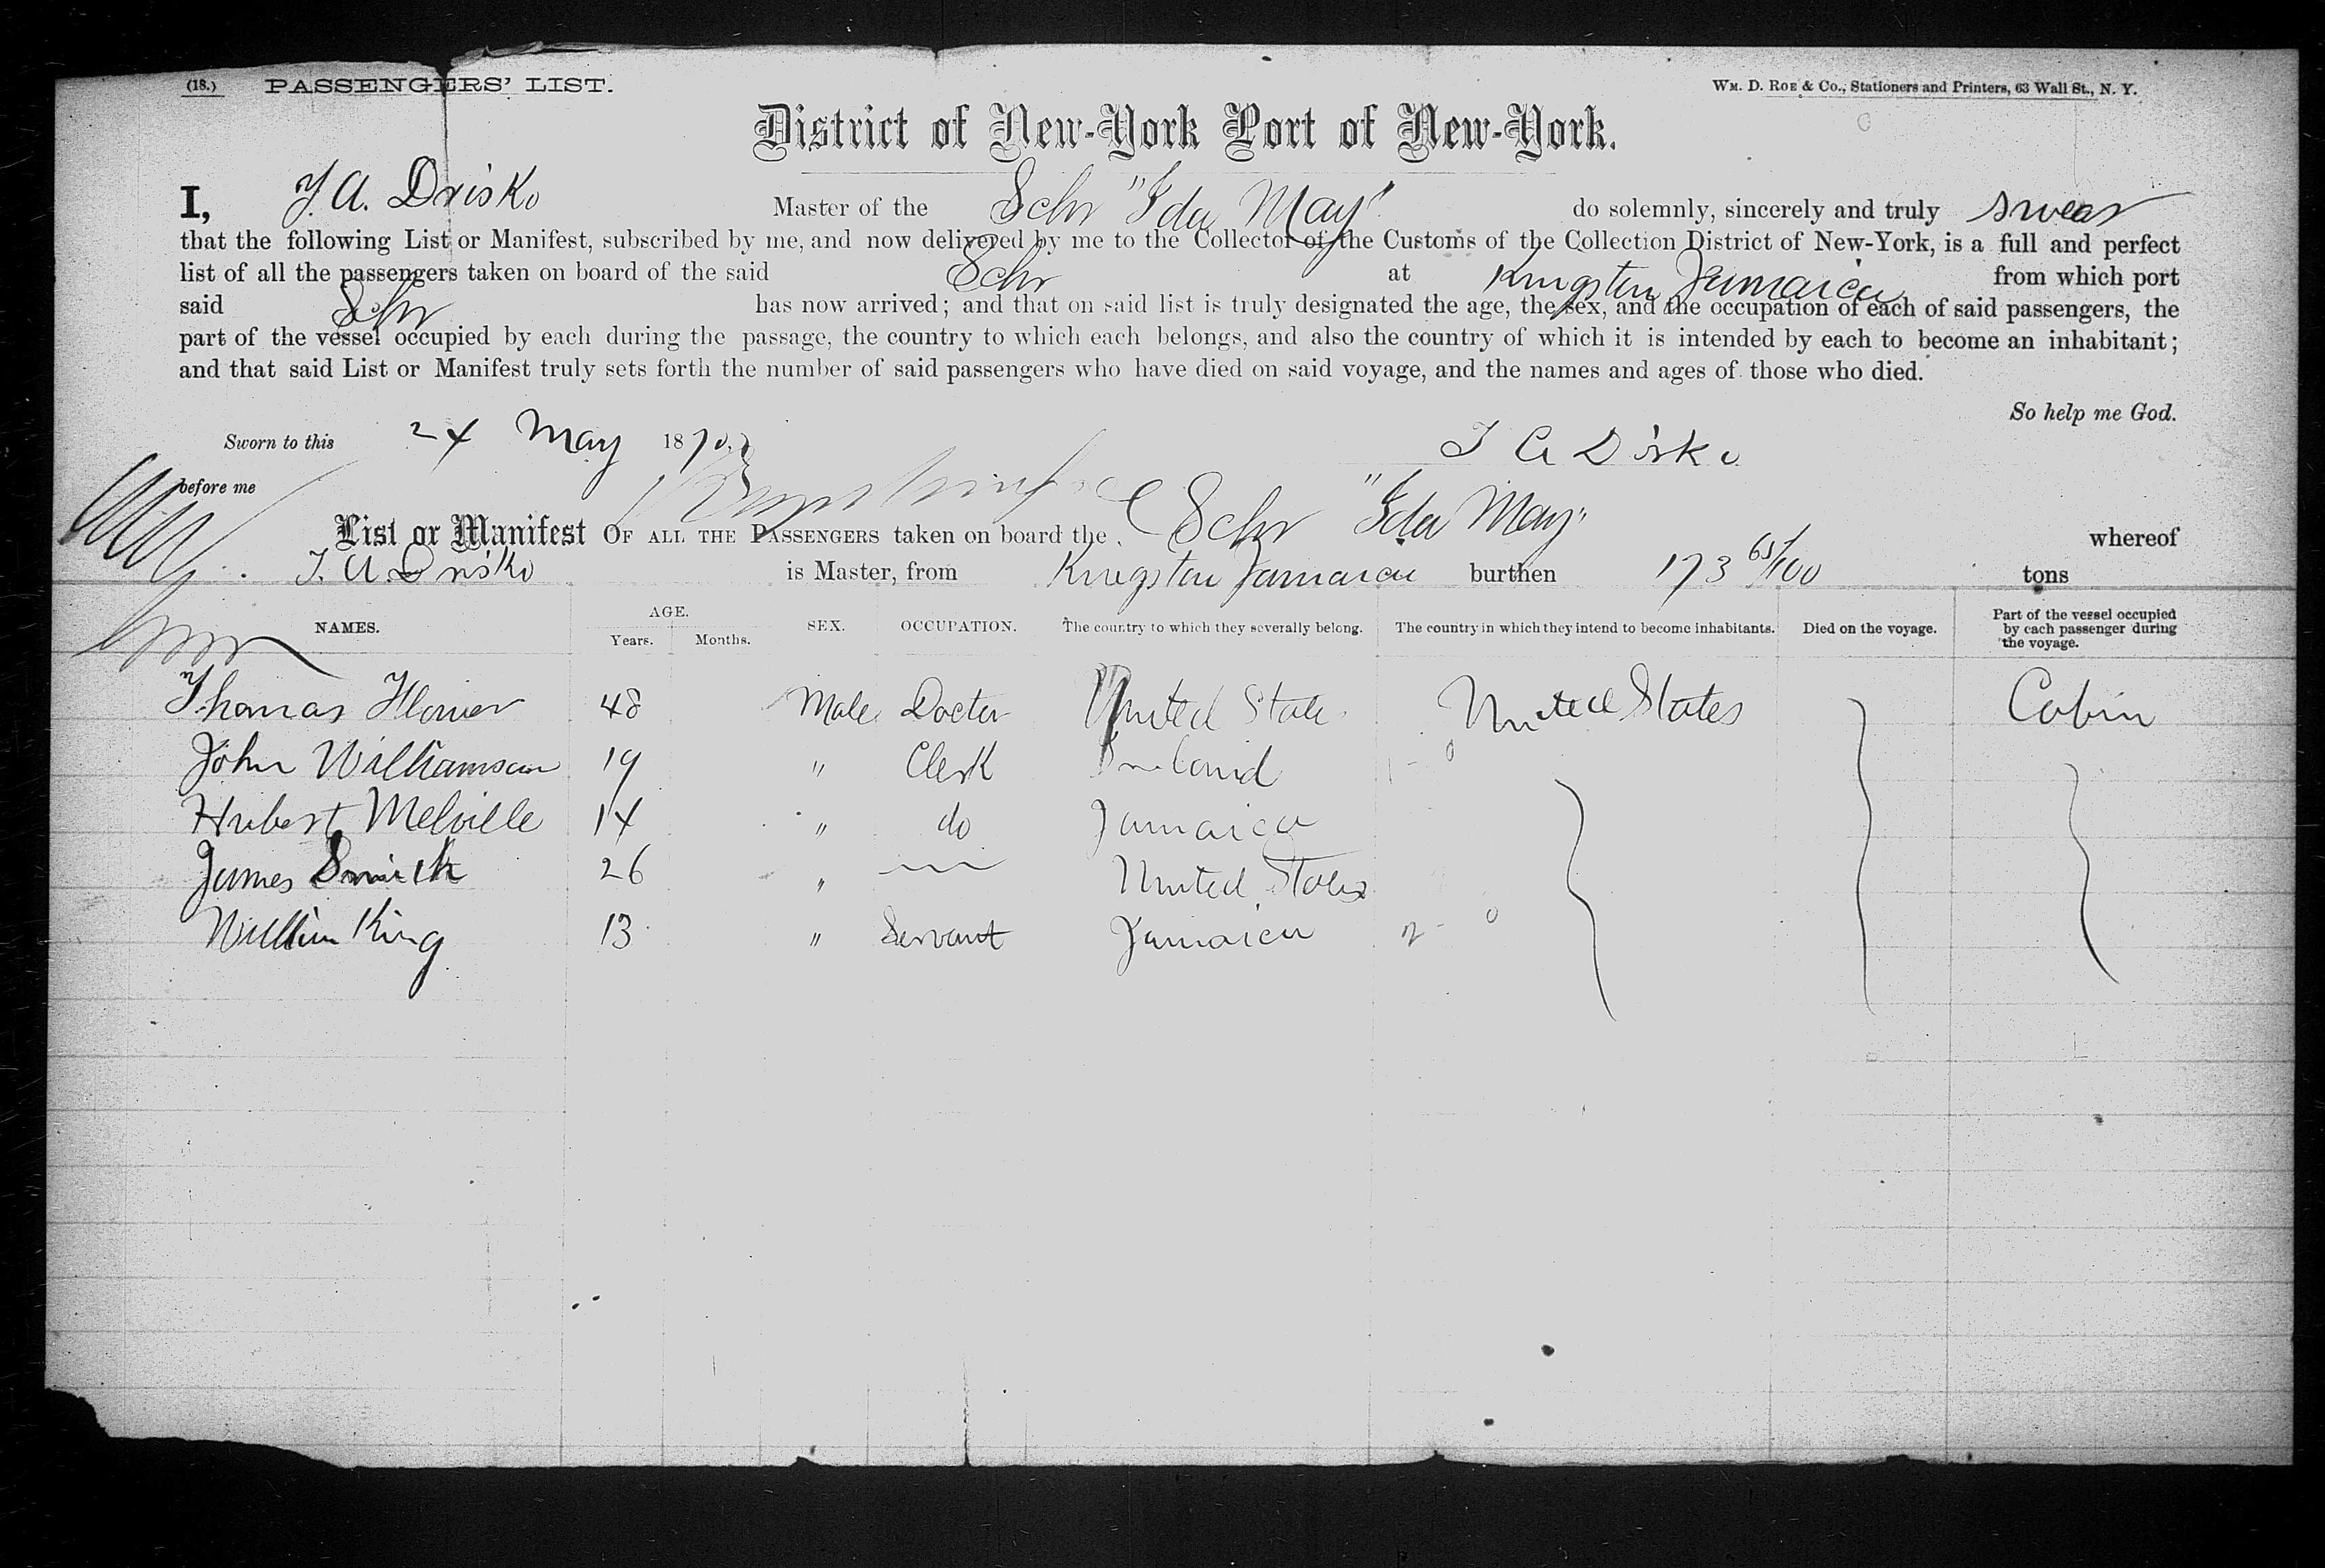 (18.) PASSENGERS' LIST. Wm. D. Roe & Co., Stationers and Printers, 63 Wall St., N. Y.
District of New-York Port of New-York.
I, J. A. Drisko Master of the Schr "Ida May" do solemnly, sincerely and truly swear
that the following List or Manifest, subscribed by me, and now delivered by me to the Collector of the Customs of the Collection District of New-York, is a full and perfect
list of all the passengers taken on board of the said Schr at Kingston Jamaica from which port
said Schr has now arrived; and that on said list is truly designated the age, the sex, and the occupation of each of said passengers, the
part of the vessel occupied by each during the passage, the country to which each belongs, and also the country of which it is intended by each to become an inhabitant;
and that said List or Manifest truly sets forth the number of said passengers who have died on said voyage, and the names and ages of those who died.
So help me God.
Sworn to this 24 May 1870 J A Drisko
before me
List or Manifest OF ALL THE PASSENGERS taken on board the Schr "Ida May" whereof
J. A. Drisko is Master, from Kingston Jamaica burthen 173 65/100 tons
NAMES. AGE. Years. Months. SEX. OCCUPATION. The country to which they severally belong. The country in which they intend to become inhabitants. Died on the voyage. Part of the vessel occupied by each passenger during the voyage.
Thomas 48 Male Docter United State United States Cabin
John Williamson 19 " Clerk
Hubert Melville 14 " do Jamaica
James Smith 26 " United States
William King 13 " Servant Jamaica